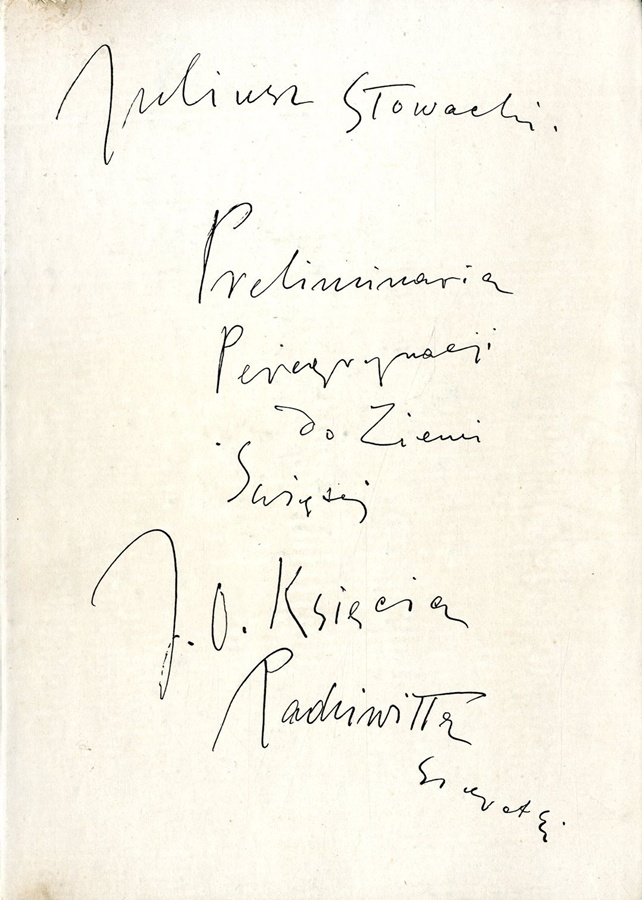 Juliusz Słowacki.
Preliminaria
Peregrynacji
do Ziemi
Świętej
J.O. Księcia
Radziwiłła
Sierotki